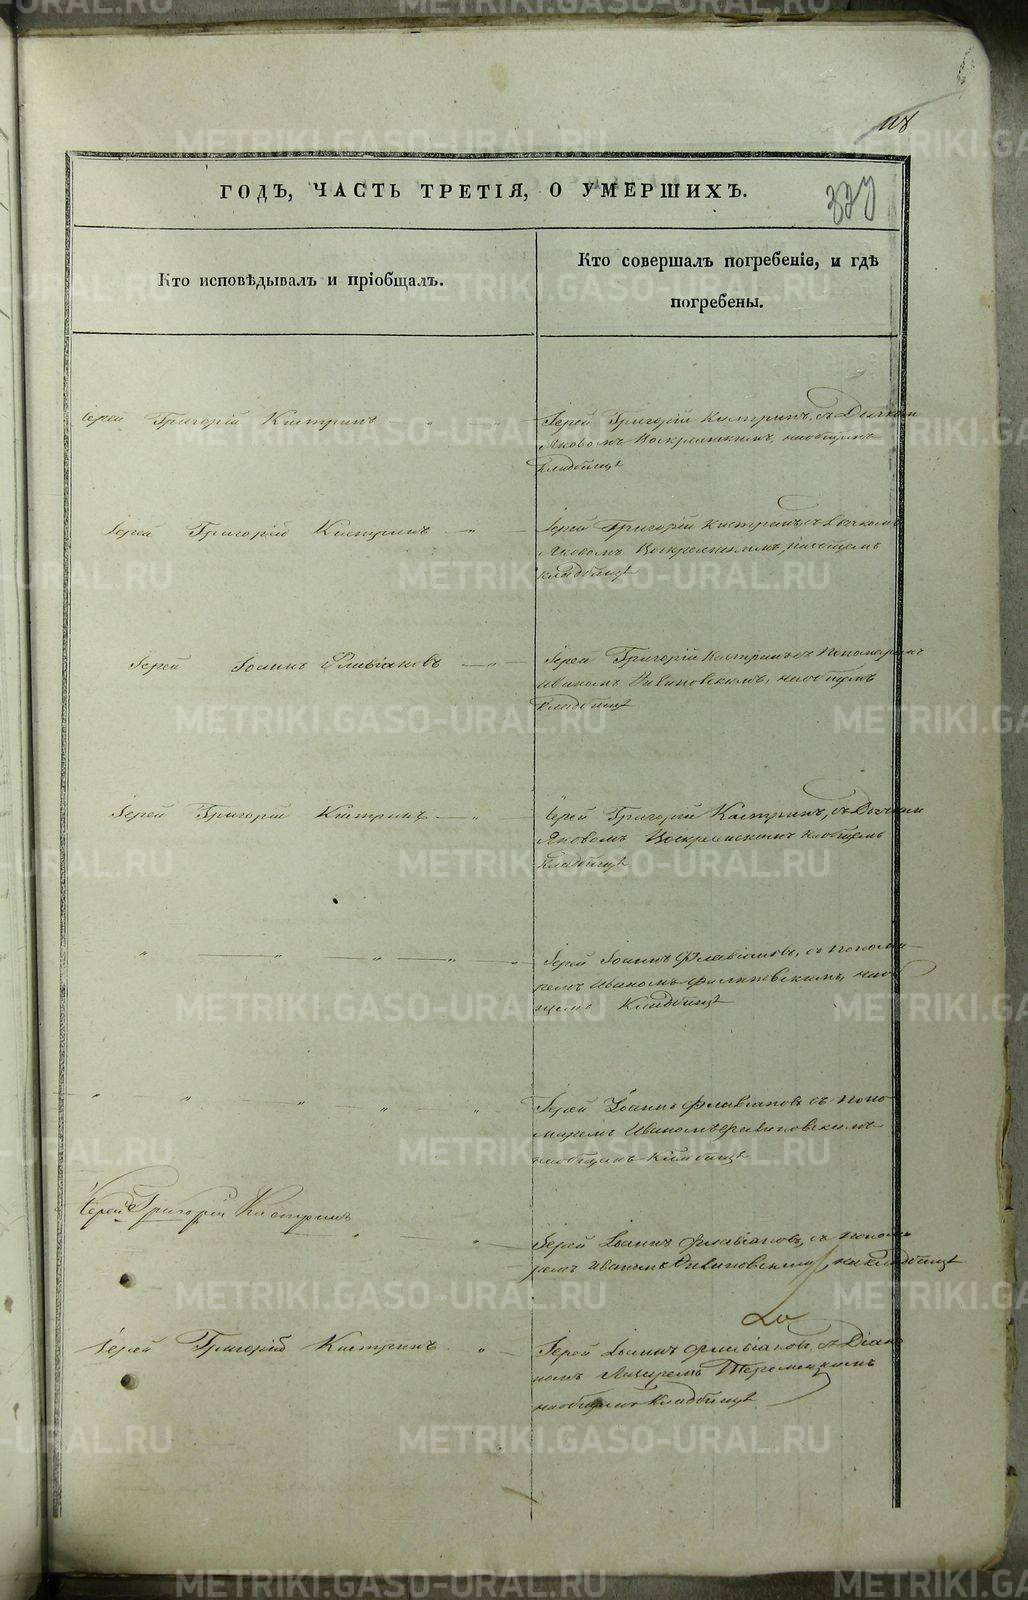 118
ГОДЪ, ЧАСТЬ ТРЕТІЯ, О УМЕРШИХЪ.
327
Кто исповѣдывалъ и пріобщалъ.
Кто совершалъ погребеніе, и гдѣ
погребены.
Іерей Григорій Кистринъ
Іерей Григорій Кистринъ, съ Дьячком
Яковомъ Воскресенскимъ, наобщемъ
Кладбищѣ
Іерей Григорій Кистринъ
Іерей Григорій Кистринъ, съ Дьячкомъ
Яковомъ Воскресенскимъ, наобщемъ
кладбищѣ
Іерей Іоаннъ Флавіановъ
Іерей Григорій Кистринъ съ Пономаремъ
Иваномъ наобщемъ
Кладбищѣ
Іерей Григорій Кистринъ
Іерей Григорій Кистринъ, съ Дьячком
Яковомъ Воскресенскимъ наобщемъ
Кладбищѣ
Іерей Іоаннъ Флавіановъ, съ понома
ремъ Иваномъ наоб
щемъ Кладбищѣ
Іерей Іоаннъ Флавіановъ съ Поно
маремъ Иваномъ
наобщемъ Кладбищѣ
Іерей Григорій Кистринъ
Іерей Іоаннъ Флавіановъ, съ понома
ремъ Иваномъ на кладбищѣ
Іерей Григорій Кистринъ
Іерей Іоаннъ Флавіановъ, съ Діако
номъ
наобщемъ Кладбищѣ
METRIKI.GASO-URAL.RU